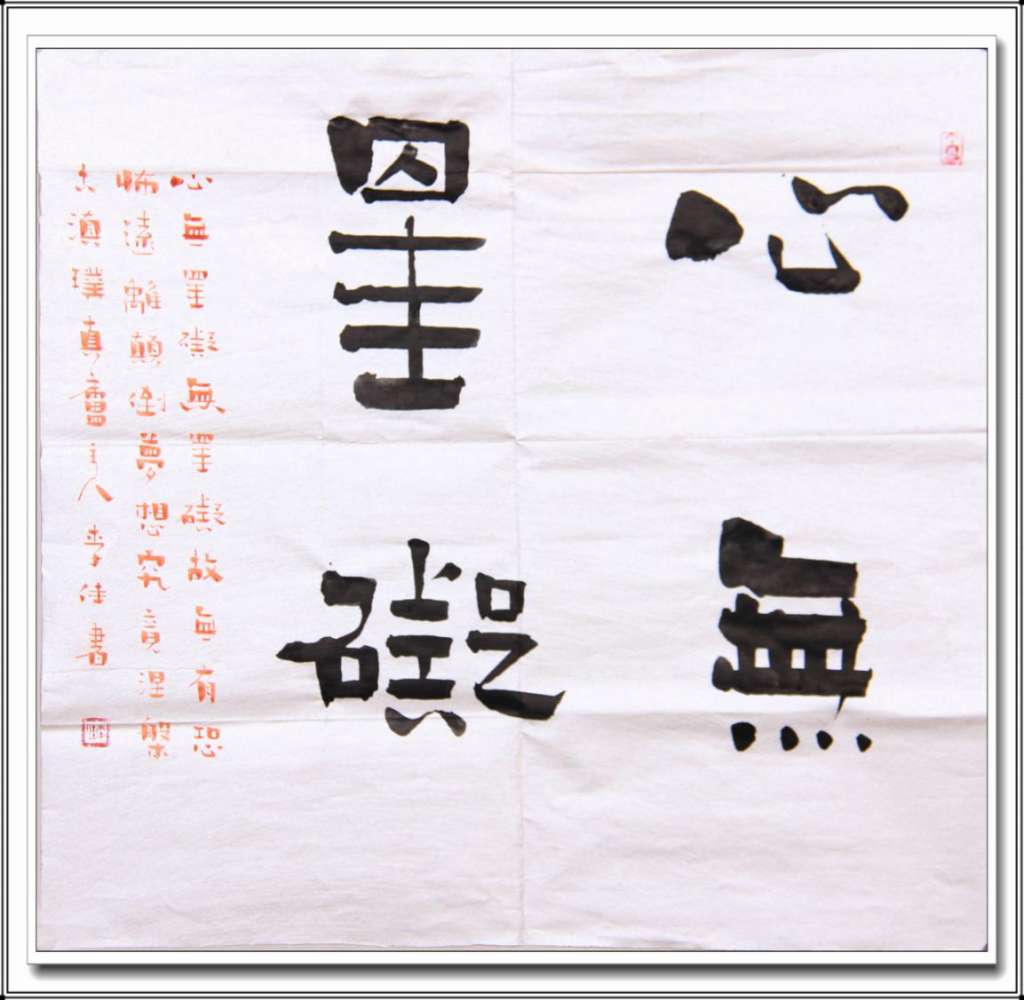 心無
罣礙
心無罣礙無罣礙故無有恐
怖遠離顛倒夢想究竟涅槃
古滇璞真主人李佳書